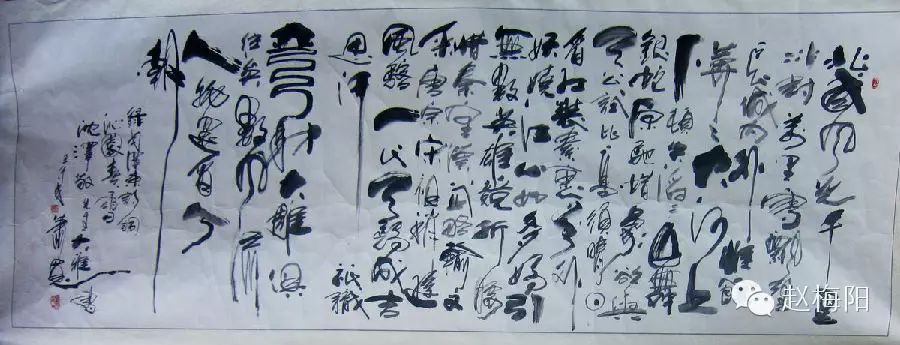 北國風光千里
冰封萬里雪飄望
長城內外惟餘
莽〻大河上
下頓失滔〻山舞
銀蛇原馳蜡象欲與
天公試比高須晴日
看紅裝素裹分外
妖嬈江山如此多嬌引
無數英雄競折腰
惜秦皇漢武略輸文
采唐宗宋祖稍遜
風騷一代天驕成吉
思汗
祇識
彎弓射大雕俱
往矣數風流
人物還看今
朝
沁園春雪
大雅
書
赵梅阳